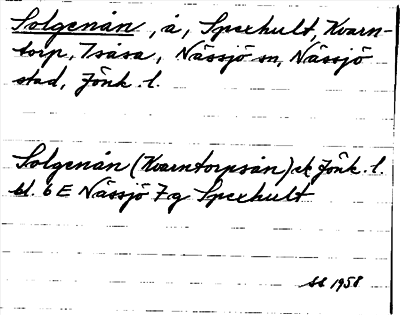 Solgenån, å, Spexhult, Kvarn-
torp, Isåsa, Nässjö sn, Nässjö
stad, Jönk. l.
Solgenån (Kvarntorpsån) ek Jönk. l.
bl. 6 E Nässjö 7 g Spexhult
1958